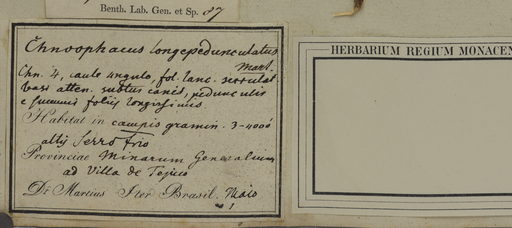 Benth. Lab. Gen. et Sp. 87
Chnoophacus longepedunculatus
Mart.
Chn. 4, caule angulo, fol. lanc.
basi atten. subtus canis, pedunculis
e summis foliis longissimis
Habitat in campis gramin. 3-4000
altis Serro frio
Provinciae Minarum Generalium
ad Villa de Tejuco
Dr Martius Iter Brasil. Maio
HERBARIUM REGIUM MONACEN